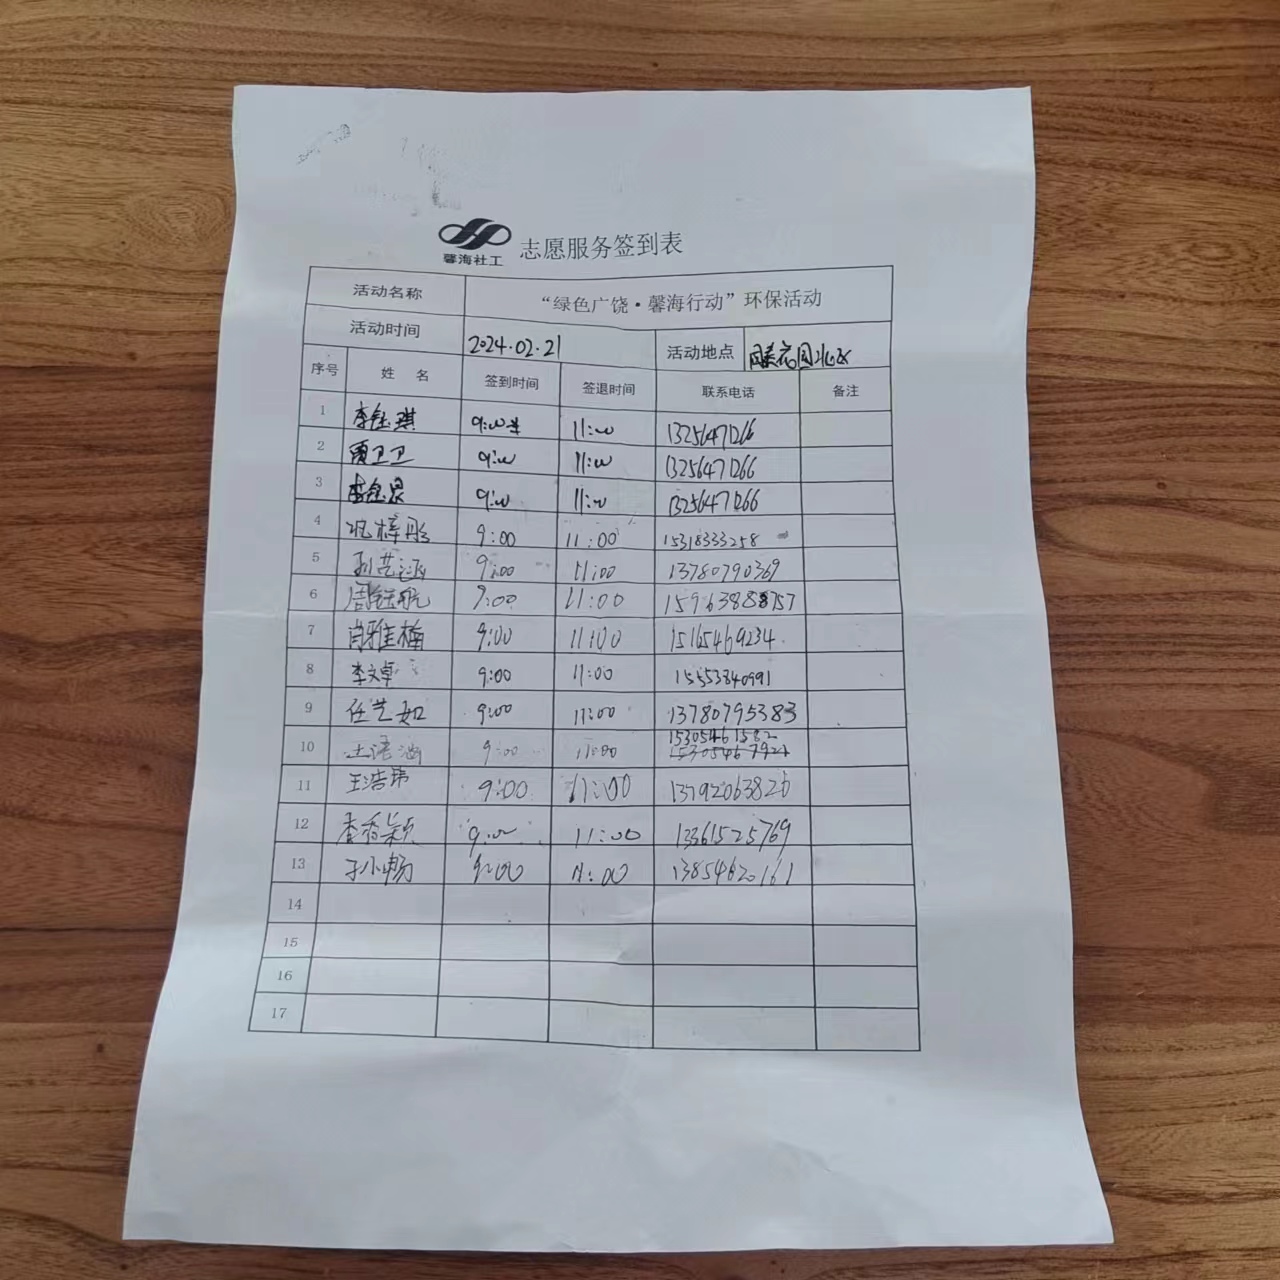 馨海社工
志愿服务签到表
活动名称 “绿色广饶·馨海行动”环保活动
活动时间 2024.02.21 活动地点 花园北区
序号 姓 名 签到时间 签退时间 联系电话 备注
1 李钰琪 9:00 11:00 13256471266
2 贾卫卫 9:00 11:00 13256471266
3 李钰泉 9:00 11:00 13256471266
4 巩梓彤 9:00 11:00 15318333258
5 孙艺涵 9:00 11:00 13780790369
6 周钰航 9:00 11:00 15963888757
7 肖雅楠 9:00 11:00 15165469234
8 李文卓 9:00 11:00 15553840991
9 任艺如 9:00 11:00 13780795383
10 王语涵 9:00 11:00 15305461582
11 王浩玮 9:00 11:00 13792063826
12 李香颖 9:00 11:00 13361525769
13 于小畅 9:00 11:00 13854620161
14
15
16
17